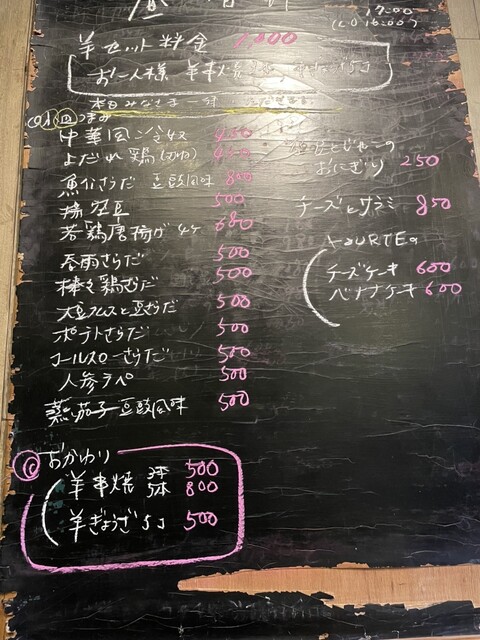 17:00
羊セット料金 1,000
お一人様 羊串焼 5コ
中華風冷奴 450
よだれ鶏
魚介さらだ 豆豉風味 800
揚空豆 500
若鶏唐揚げ4ケ 680
春雨さらだ 500
棒々鶏さらだ 500
大豆ミートと豆さらだ 500
ポテトさらだ 500
コールスローさらだ 500
人参ラペ 500
蒸し茄子豆豉風味 500
おかわり
羊串焼 3本 500
5本 800
羊ぎょうざ 5コ 500
じゃこの
おにぎり 250
チーズとサラミ 850
YOURTEの
チーズケーキ 600
バナナケーキ 600